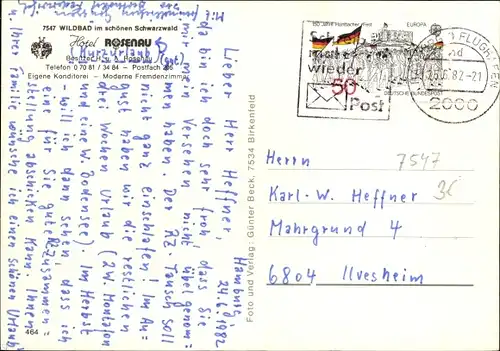 7547 WILDBAD im schönen Schwarzwald
Hotel ROSENAU
(Kurzurlaub)
Besitzer: H. u. S. Rosenau
Telefon: 0 70 81 / 34 84 - Postfach 206
Eigene Konditorei - Moderne Fremdenzimmer
Hamburg,
24.6.1982
Lieber Herr Heffner,
da bin ich doch sehr froh, dass Sie
mir mein Versehen nicht übel genom-
men haben. Der RZ.-Tausch soll
nicht ganz einschlafen! Im Au-
gust haben wir die restlichen
drei Wochen Urlaub (2W. Montafon
und eine W. Bodensee). Im Herbst
will ich dann sehen, dass ich
eine für Sie gute RZusammen-
stellung abschicken kann. Ihnen
u. Ihrer Familie wünsche ich einen schönen Urlaub
Mit
464
Foto und Verlag: Günter Beck, 7534 Birkenfeld
150 Jahre Hambacher Fest
EUROPA
50
DEUTSCHE BUNDESPOST
Schreib
mal
wieder
Post
FLUGHAFEN
25.6.82-21
2000
7547
Herrn
Karl-W. Heffner
Mahrgrund 4
6804 Ilvesheim